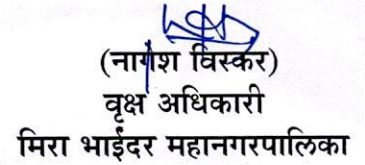 (नागेश विस्कर)
वृक्ष अधिकारी
मिरा भाईंदर महानगरपालिका